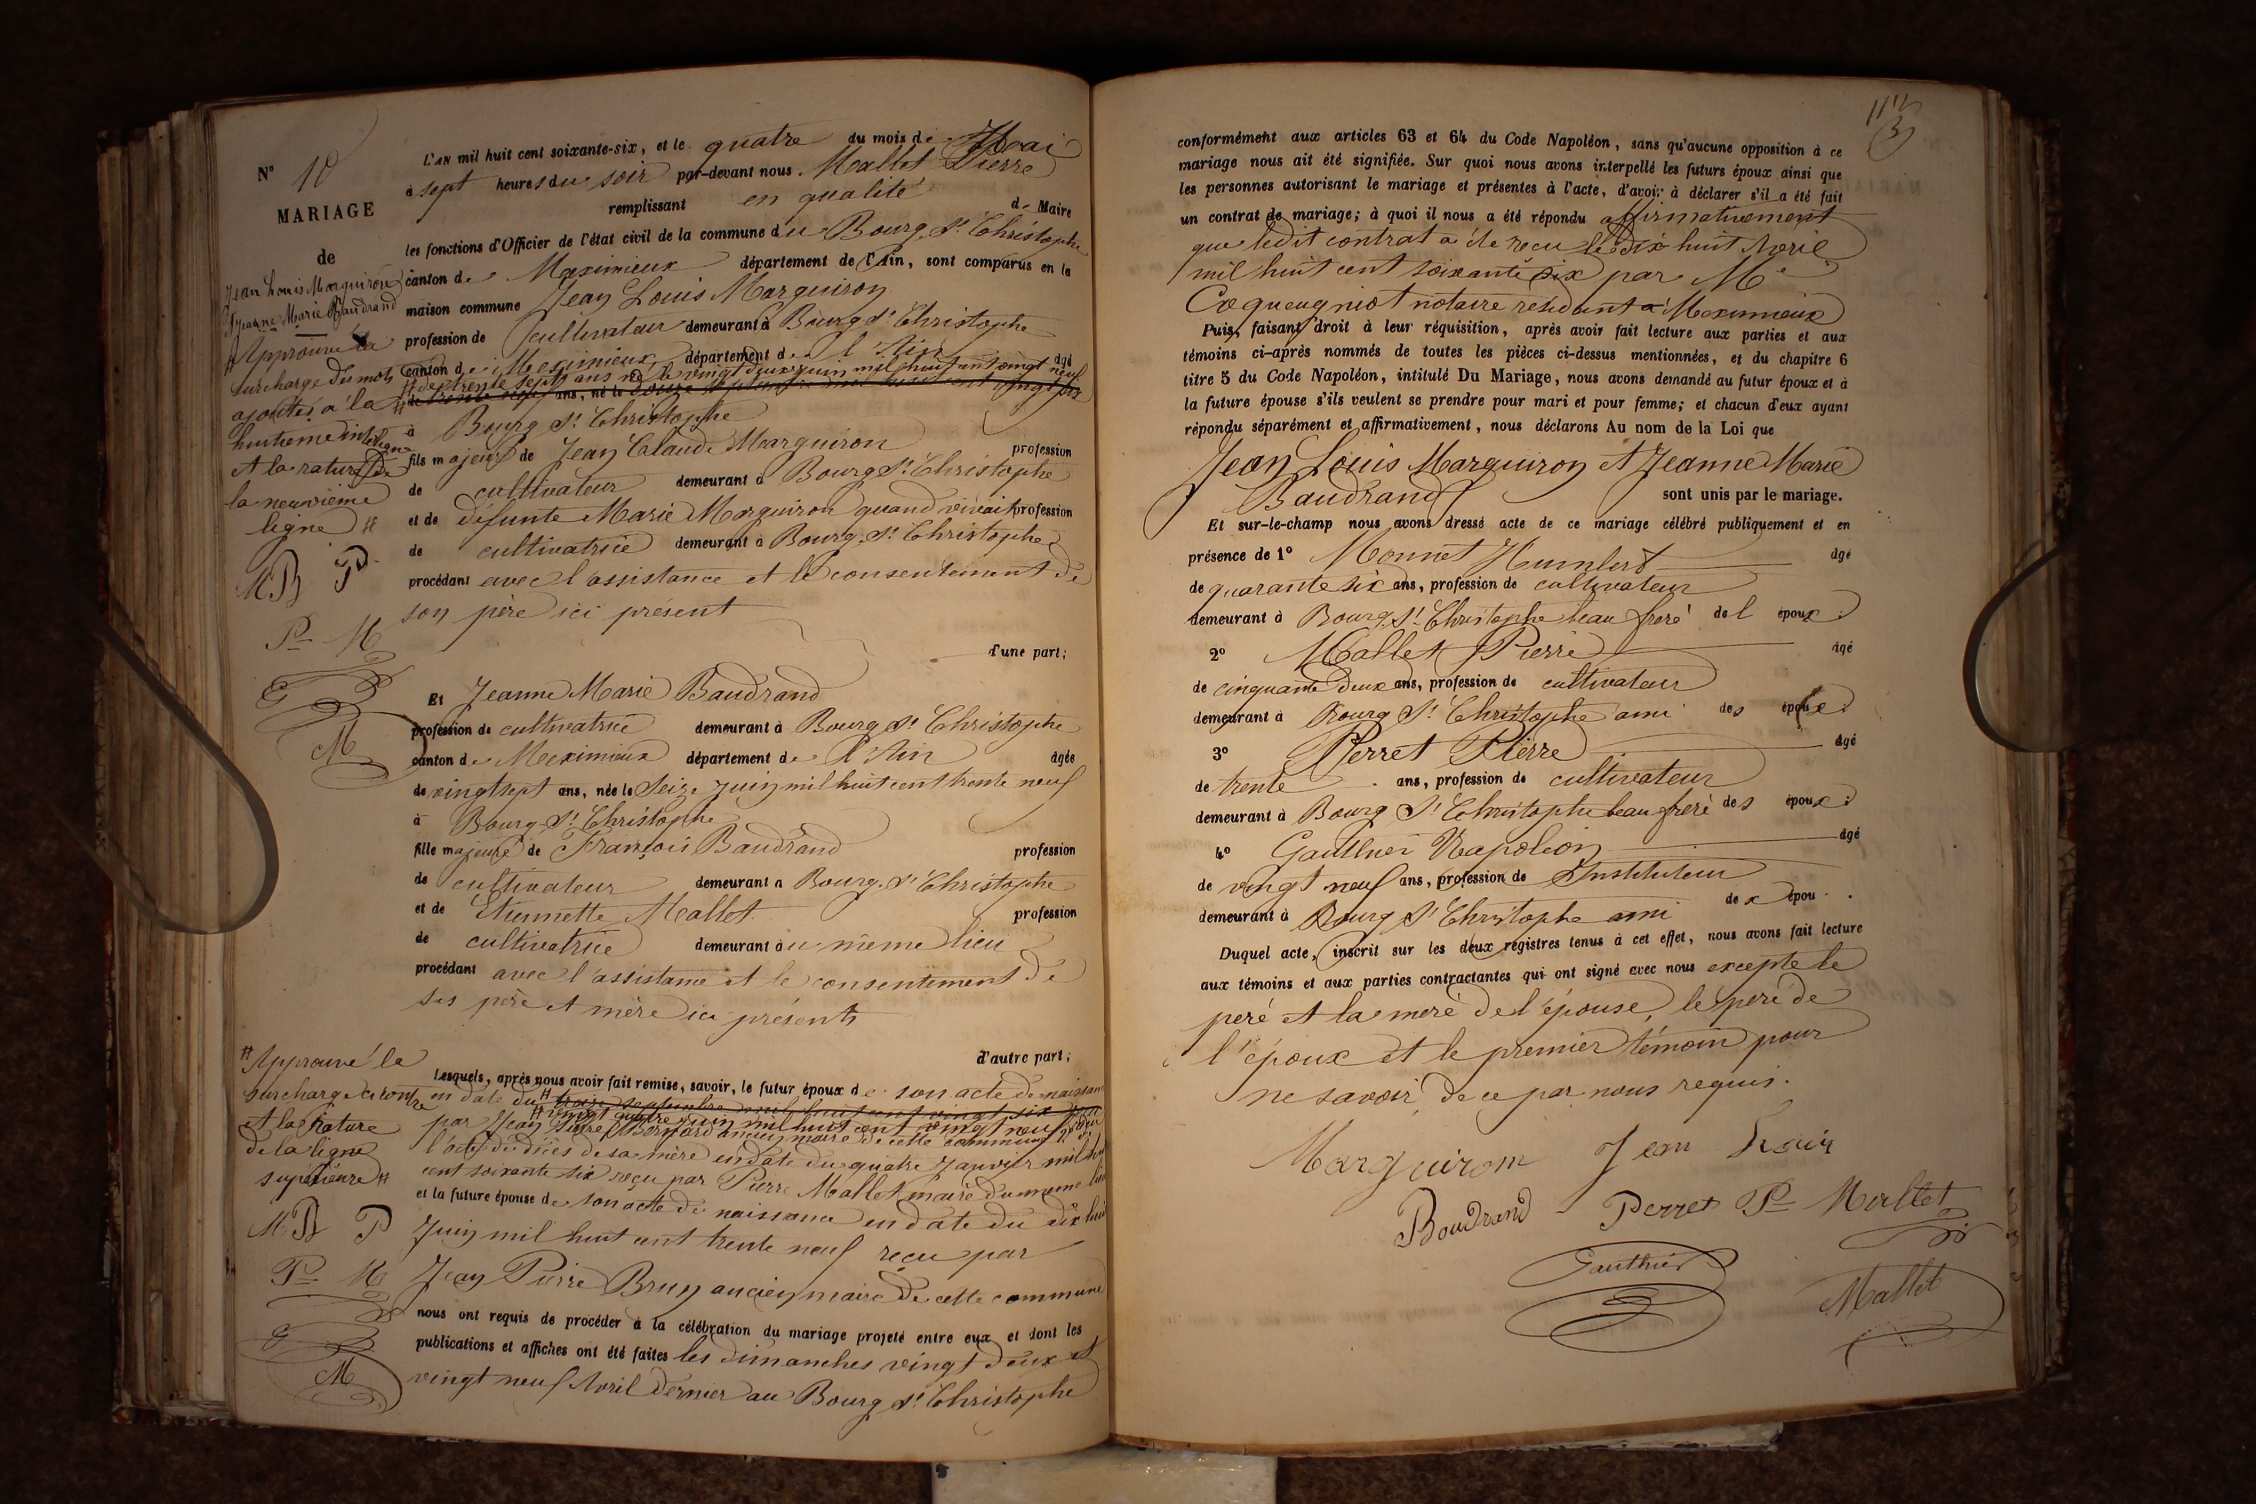 N° 10
MARIAGE
de
Jean Louis Marguiron
Jeanne Marie Baudrand
# Approuvé la
surcharge des mots
ajoutés à la
huitième interligne
et la rature de
la neuvième
ligne #
MB P
Pre M
G B
M
L'AN mil huit cent soixante-six, et le quatre du mois de Mai
à sept heures du soir par-devant nous Mallet Pierre
remplissant en qualité de Maire
les fonctions d'Officier de l'état civil de la commune du Bourg St Christophe
canton de Meximieux département de l'Ain, sont comparus en la
maison commune Jean Louis Marguiron
profession de cultivateur demeurant à Bourg St Christophe
canton de Meximieux département de l'Ain âgé
# de trente sept ans né le vingt deux juin mil huit cent vingt neuf
# de trente sept ans, né le douze septembre mil huit cent vingt six
à Bourg St Christophe
fils majeur de Jean Claude Marguiron profession
de cultivateur demeurant à Bourg St Christophe
et de défunte Marie Marguiron quand vivait profession
de cultivatrice demeurant à Bourg St Christophe
procédant avec l'assistance et le consentement de
son père ici présent
d'une part;
Et Jeanne Marie Baudrand
profession de cultivatrice demeurant à Bourg St Christophe
canton de Meximieux département de l'Ain âgée
de vingt sept ans, née le seize juin mil huit cent trente neuf
à Bourg St Christophe
fille majeure de François Baudrand profession
de cultivateur demeurant à Bourg St Christophe
et de Etiennette Mallet profession
de cultivatrice demeurant au même lieu
procédant avec l'assistance et le consentement de
ses père et mère ici présents
d'autre part;
# Approuvé la
surcharge ci contre
et la rature
de la ligne
supérieure #
MB P
Pre M
G B
M
Lesquels, après nous avoir fait remise, savoir, le futur époux de son acte de naissance
en date du # treize septembre mil huit cent vingt six
# vingt quatre juin mil huit cent vingt neuf
par Jean Pierre Bernard ancien maire de cette commune
l'acte de décès de sa mère en date du quatre janvier mil huit
cent soixante six reçu par Pierre Mallet maire du même lieu
et la future épouse de son acte de naissance en date du dix huit
Juin mil huit cent trente neuf reçu par
Jean Pierre Brun ancien maire de cette commune
nous ont requis de procéder à la célébration du mariage projeté entre eux et dont les
publications et affiches ont été faites les dimanches vingt deux et
vingt neuf Avril dernier au Bourg St Christophe
conformément aux articles 63 et 64 du Code Napoléon, sans qu'aucune opposition à ce
mariage nous ait été signifiée. Sur quoi nous avons interpellé les futurs époux ainsi que
les personnes autorisant le mariage et présentes à l'acte, d'avoir à déclarer s'il a été fait
un contrat de mariage; à quoi il nous a été répondu affirmativement
que ledit contrat a été reçu le dix huit Avril
mil huit cent soixante six par Me
Coqueugniot notaire résidant à Meximieux
Puis, faisant droit à leur réquisition, après avoir fait lecture aux parties et aux
témoins ci-après nommés de toutes les pièces ci-dessus mentionnées, et du chapitre 6
titre 5 du Code Napoléon, intitulé Du Mariage, nous avons demandé au futur époux et à
la future épouse s'ils veulent se prendre pour mari et pour femme; et chacun d'eux ayant
répondu séparément et affirmativement, nous déclarons Au nom de la Loi que
Jean Louis Marguiron et Jeanne Marie
Baudrand sont unis par le mariage.
Et sur-le-champ nous avons dressé acte de ce mariage célébré publiquement et en
présence de 1° Monnet Humbert âgé
de quarante six ans, profession de cultivateur
demeurant à Bourg St Christophe beau frère de l époux.
2° Mallet Pierre âgé
de cinquante deux ans, profession de cultivateur
demeurant à Bourg St Christophe ami des époux.
3° Perret Pierre âgé
de trente ans, profession de cultivateur
demeurant à Bourg St Christophe beau frère des époux.
4° Gauthier Napoléon âgé
de vingt neuf ans, profession de Instituteur
demeurant à Bourg St Christophe ami des époux.
Duquel acte, inscrit sur les deux registres tenus à cet effet, nous avons fait lecture
aux témoins et aux parties contractantes qui ont signé avec nous excepté le
père et la mère de l'épouse, le père de
l'époux et le premier témoin pour
ne savoir de ce par nous requis.
Marguiron Jean Louis
Boudrand Perret Pre Mallet
Gauthier
Mallet